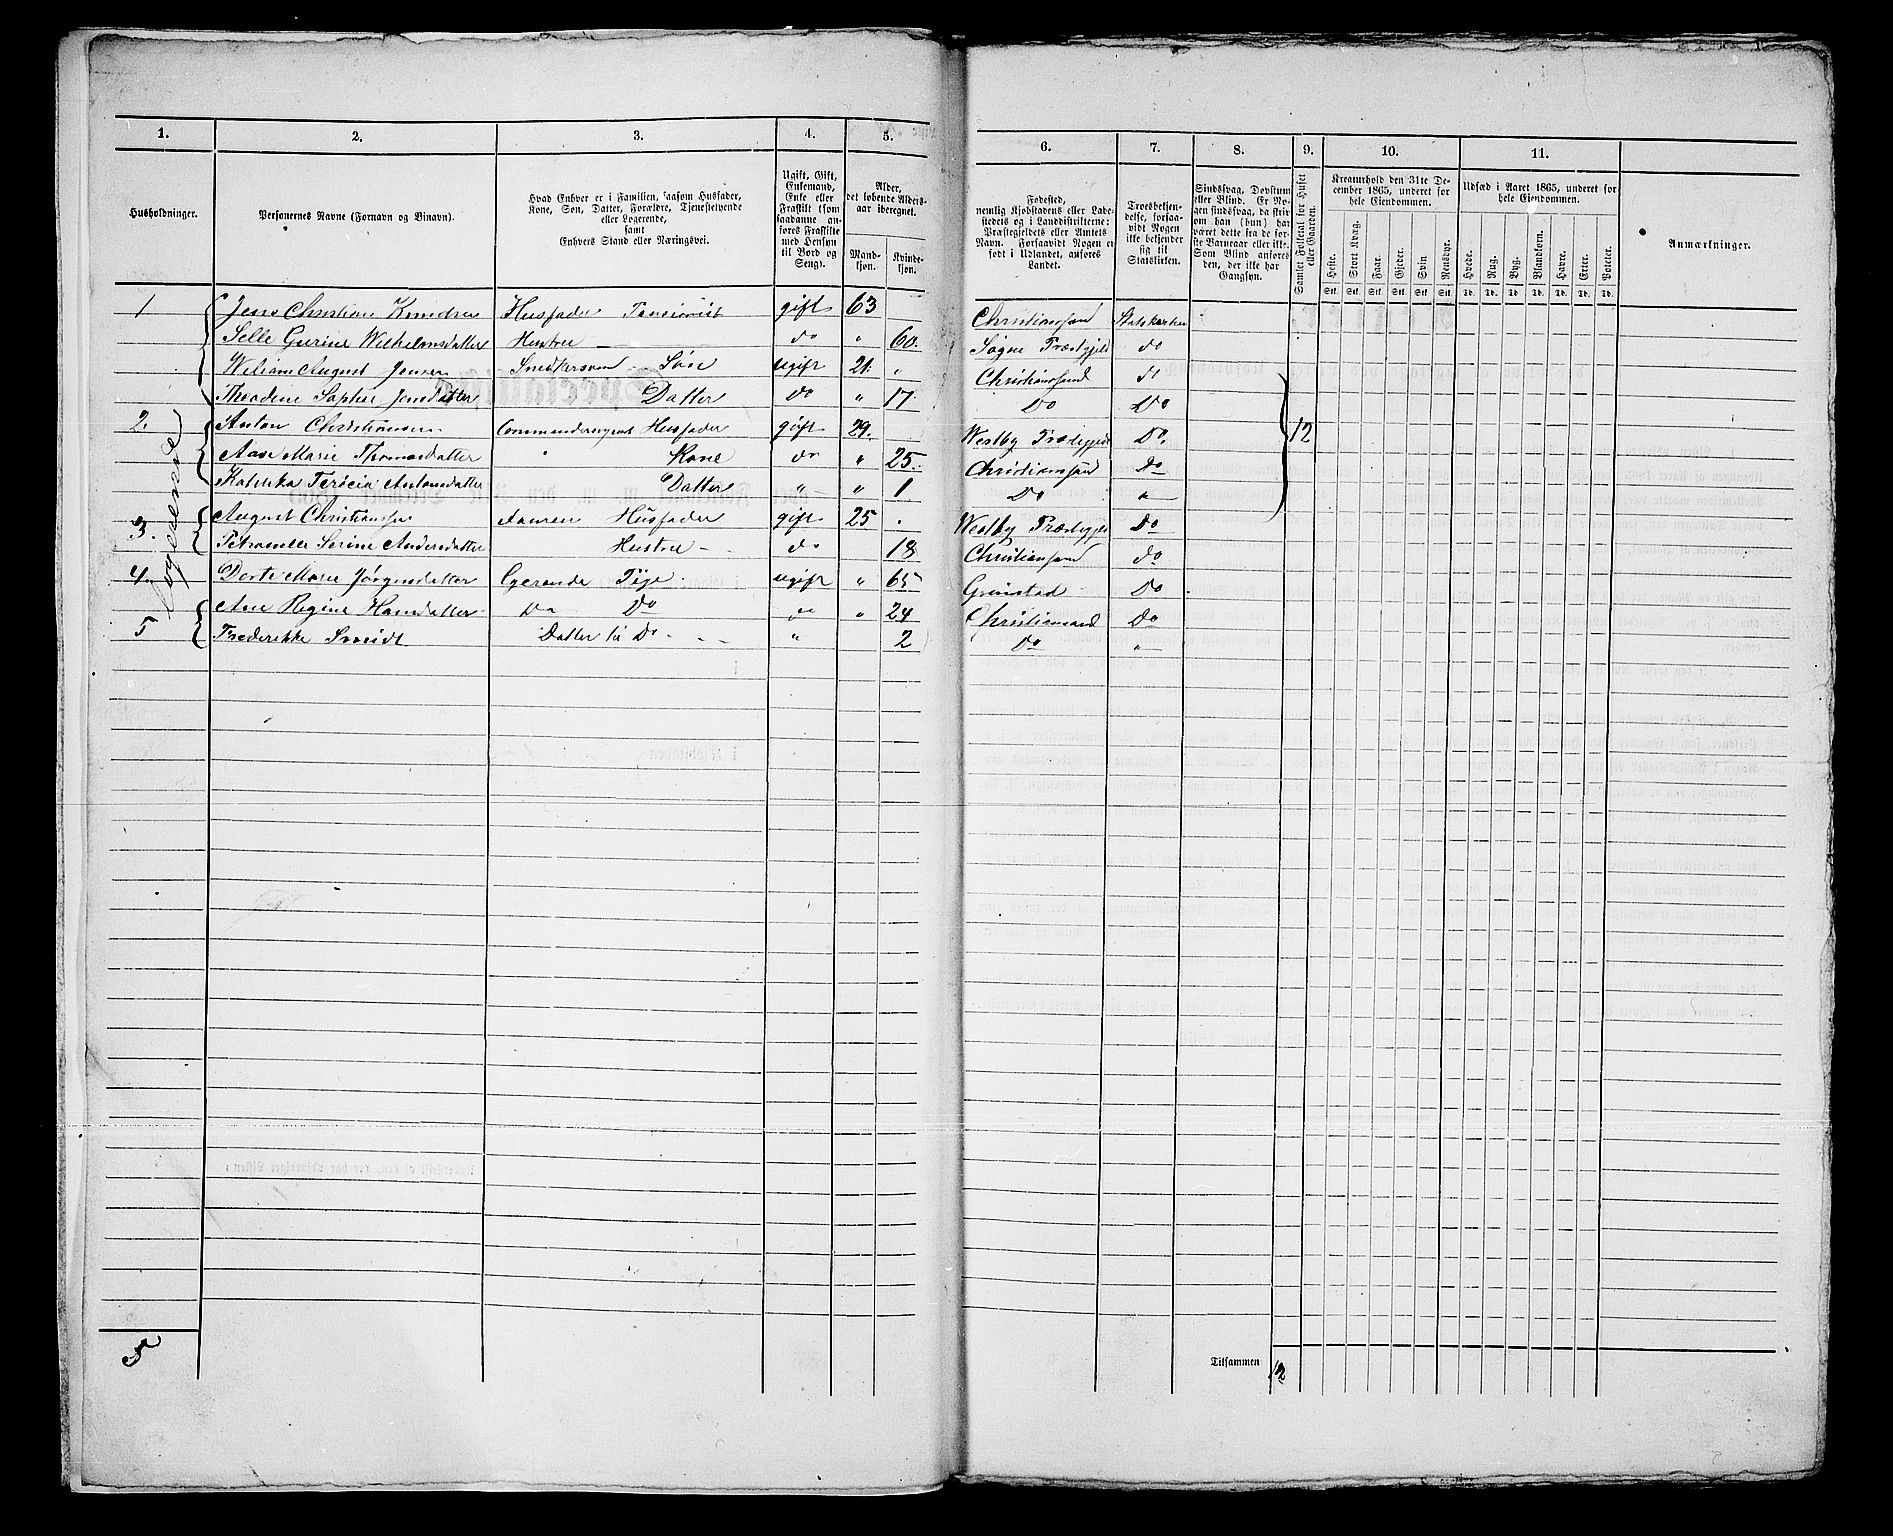 1. 2. 3. 4. 5. 6. 7. 8. 9. 10. 11.
Husholdninger.
Personernes Navne (Fornavn og Binavn).
Hvad Enhver er i Familien, saasom Husfader, Kone, Søn, Datter, Forældre, Tjenestetyende eller Logerende, samt Enhvers Stand eller Næringsvei.
Ugift, Gift, Enkemand, Enke eller Fraskilt (som saadanne anføres Fraskilte med Hensyn til Bord og Seng).
Alder, det løbende Alders-aar iberegnet.
Mand-kjøn. Kvinde-kjøn.
Fødested, nemlig Kjøbstadens eller Ladestedets og i Landdistrikterne: Præstegjeldets eller Amtets Navn. Forsaavidt Nogen er født i Udlandet, anføres Landet.
Troesbekjendelse, forsaavidt Nogen ikke bekjender sig til Statskirken.
Sindssvag, Døvstum eller Blind. Er Nogen sindssvag, da skriver om han (hun) har været dette fra de første Barneaar eller ikke. Som Blind anføres den, der ikke har Gangsyn.
Samlet Folketal for Huset eller Gaarden.
Kreaturhold den 31te December 1865, underet for hele Eiendommen.
Heste. Stort Kvæg. Faar. Gjeder. Svin. Rensdyr.
Stk. Stk. Stk. Stk. Stk. Stk.
Udsæd i Aaret 1865, underet for hele Eiendommen.
Hvede. Rug. Byg. Blandkorn. Havre. Erter. Poteter.
Td. Td. Td. Td. Td. Td. Td.
Anmærkninger.
1 Jens Christian Husfader Pensionist gift 63 Christiansand Statskirken
Gurine Wilhelmsdatter Hustru do " 60. Søgne Præstgjeld do
Wiliam August Jensen Søn ugift 21. " Christiansand do
Sophie Jensdatter Datter do " 17 Do Do
2. Anton Christiansen Husfader gift 29. Westby Præstegjeld Do. 12
Aase Marie Thomasdatter " Kone do " 25. Christiansand Do
Antonsdatter Datter " " 1 Do "
3. August Christiansen Husfader gift 25 . Westby Præstegjeld Do
Serine Andersdatter Hustru do 18 Christiansand do
Logerende
4. Dorte Marie Jørgensdatter Pige ugift " 65 Grimstad Do
Ane Regine Hansdatter Do Do " " 24 Christiansand Do
5 Frederikke Datter til Do " 2 Do "
5
Tilsammen 12